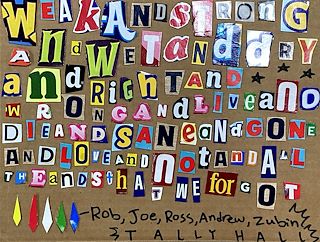 WEAKANDSTRONG
ANDWETandDRY
andORIGHTAND
WRONGANDLIVEAND
DIEANDSANEandGONE
ANDLOVEANDnotANDALL
THEANDSthATWEforGOT
-Rob, Joe, Ross, Andrew, Zubin
TALLY HALL